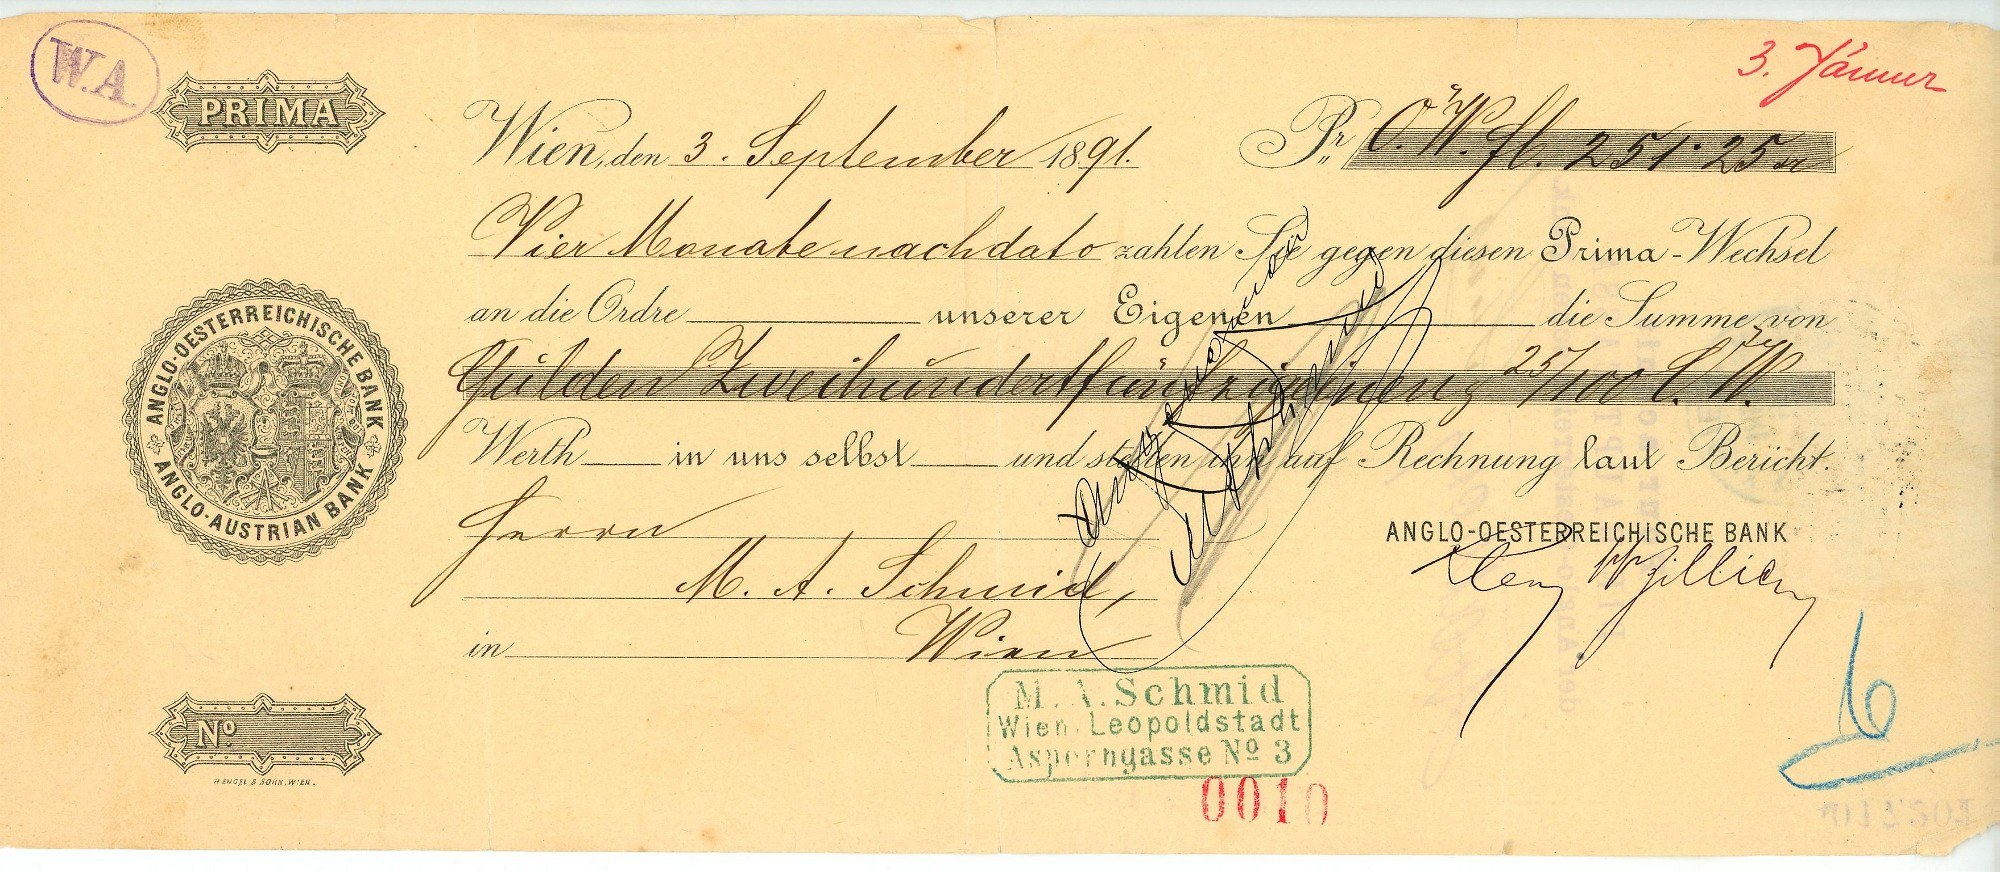 W.A.
3. Jänner
PRIMA
Wien, den 3. September 1891.
Pr. Ö.W. fl. 251.25 xr
Vier Monate nach dato zahlen Sie gegen diesen Prima-Wechsel
an die Ordre unserer Eigenen die Summe von
Gulden Zweihundertfünfzigeins 25/100 Ö.W.
Werth in uns selbst und stellen ihn auf Rechnung laut Bericht.
ANGLO-OESTERREICHISCHE BANK
ANGLO-AUSTRIAN BANK
Herrn
ANGLO-OESTERREICHISCHE BANK
M. A. Schmid,
in Wien
M. A. Schmid
Wien Leopoldstadt
Asperngasse No 3
No
H. ENGEL & SOHN, WIEN.
0010